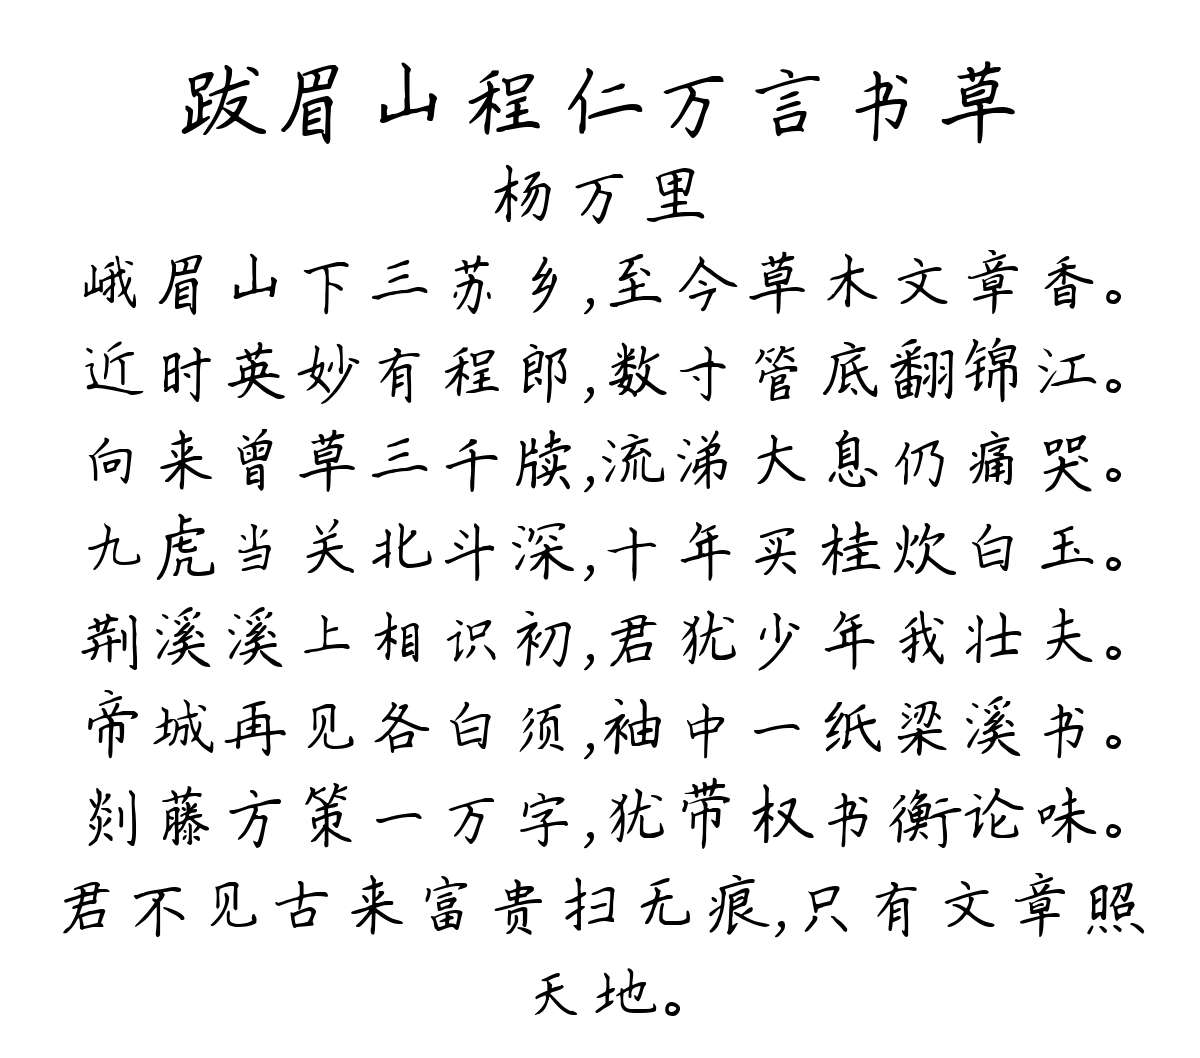 跋眉山程仁万言书草
杨万里
峨眉山下三苏乡,至今草木文章香。
近时英妙有程郎,数寸管底翻锦江。
向来曾草三千牍,流涕大息仍痛哭。
九虎当关北斗深,十年买桂炊白玉。
荆溪溪上相识初,君犹少年我壮夫。
帝城再见各白须,袖中一纸梁溪书。
剡藤方策一万字,犹带权书衡论味。
君不见古来富贵扫无痕,只有文章照
天地。